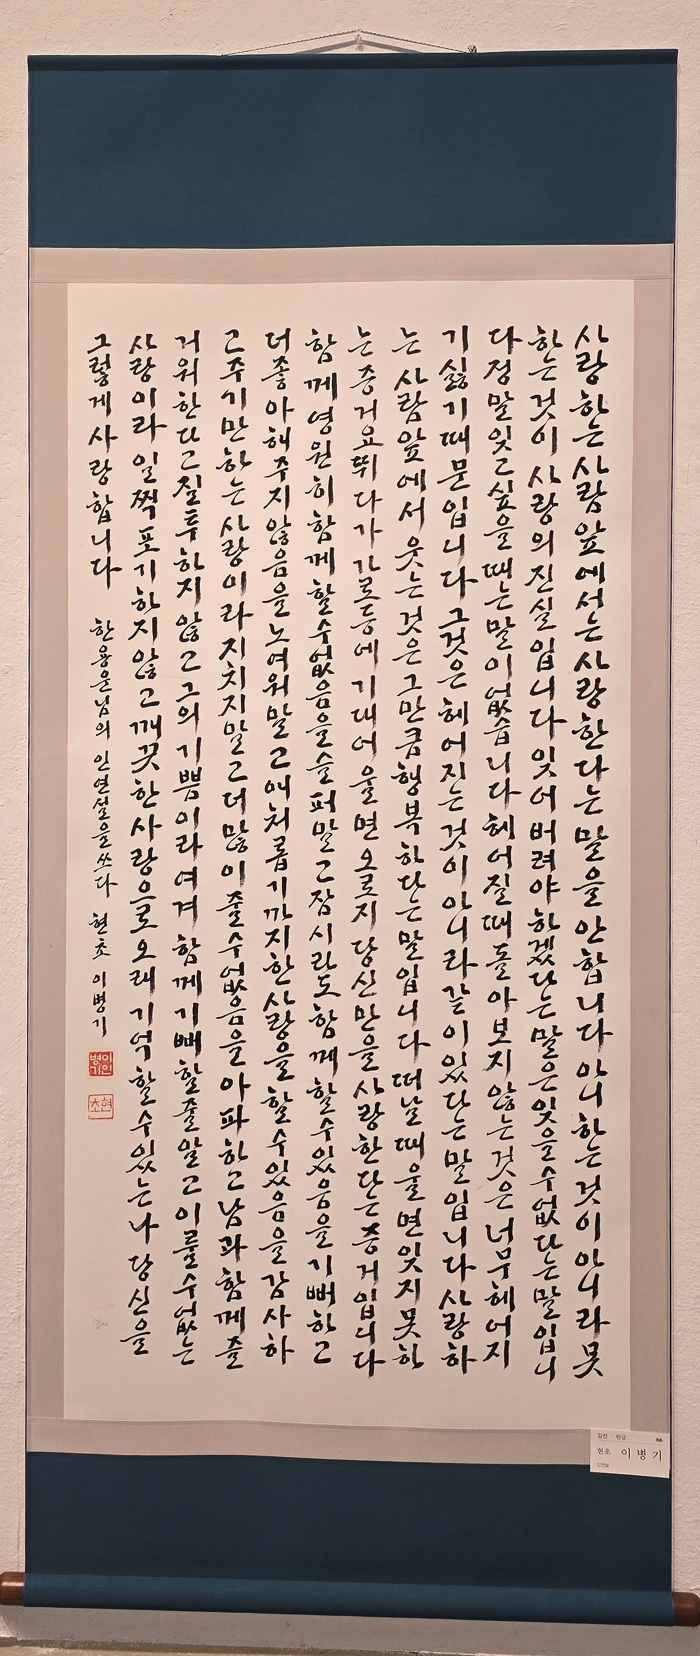 사랑하는사람앞에서는사랑한다는말을안합니다아니하는것이아니라못
하는것이사랑의진실입니다잊어버려야하겠다는말은잊을수없다는말입니
다정말잊고싶을때는말이없습니다헤어질때돌아보지않는것은너무헤어지
기싫기때문입니다그것은헤어지는것이아니라같이있다는말입니다사랑하
는사람앞에서웃는것은그만큼행복하다는말입니다떠날때울면잊지못하
는증거요뛰다가가로등에기대어울면오로지당신만을사랑한다는증거입니다
함께영원히함께할수없음을슬퍼말고잠시라도함께할수있음을기뻐하고
더좋아해주지않음을노여워말고애처롭기까지한사랑을할수있음을감사하
고주기만하는사랑이라지치지말고더많이줄수없음을아파하고남과함께즐
거워한다고질투하지않고그의기쁨이라여겨함께기뻐할줄알고이룰수없는
사랑이라일찍포기하지않고깨끗한사랑으로오래기억할수있는나당신을
그렇게사랑합니다 한용운님의 인연설을쓰다 현초 이병기
이병기인
현초
입선 한글
현초 이병기
인연설